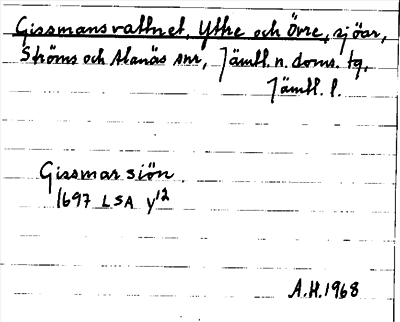 Gissmansvattnet, Yttre och Övre, sjöar,
Ströms och Alanäs snr, Jämtl. n. doms. tg,
Jämtl. l.
Gissmarsiön
1697 LSA y¹²
A.H. 1968